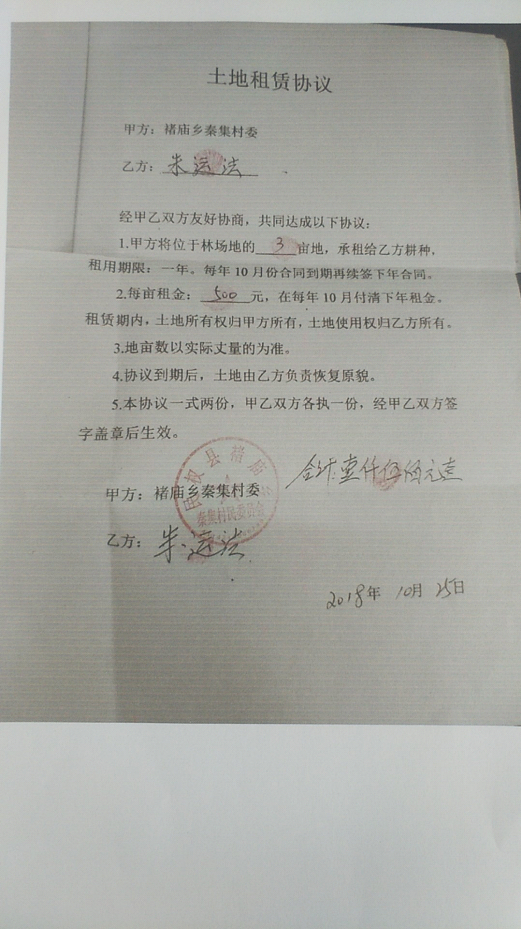 土地租赁协议
甲方：褚庙乡秦集村委
乙方：朱运法
经甲乙双方友好协商，共同达成以下协议：
1.甲方将位于林场地的 3 亩地，承租给乙方耕种，
租用期限：一年。每年 10 月份合同到期再续签下年合同。
2.每亩租金： 500 元，在每年 10 月付清下年租金。
租赁期内，土地所有权归甲方所有，土地使用权归乙方所有。
3.地亩数以实际丈量的为准。
4.协议到期后，土地由乙方负责恢复原貌。
5.本协议一式两份，甲乙双方各执一份，经甲乙双方签
字盖章后生效。
合计:壹仟伍佰元
民权县褚庙乡
秦集村民委员会
甲方：褚庙乡秦集村委
乙方：朱运法
2018年 10月 25日